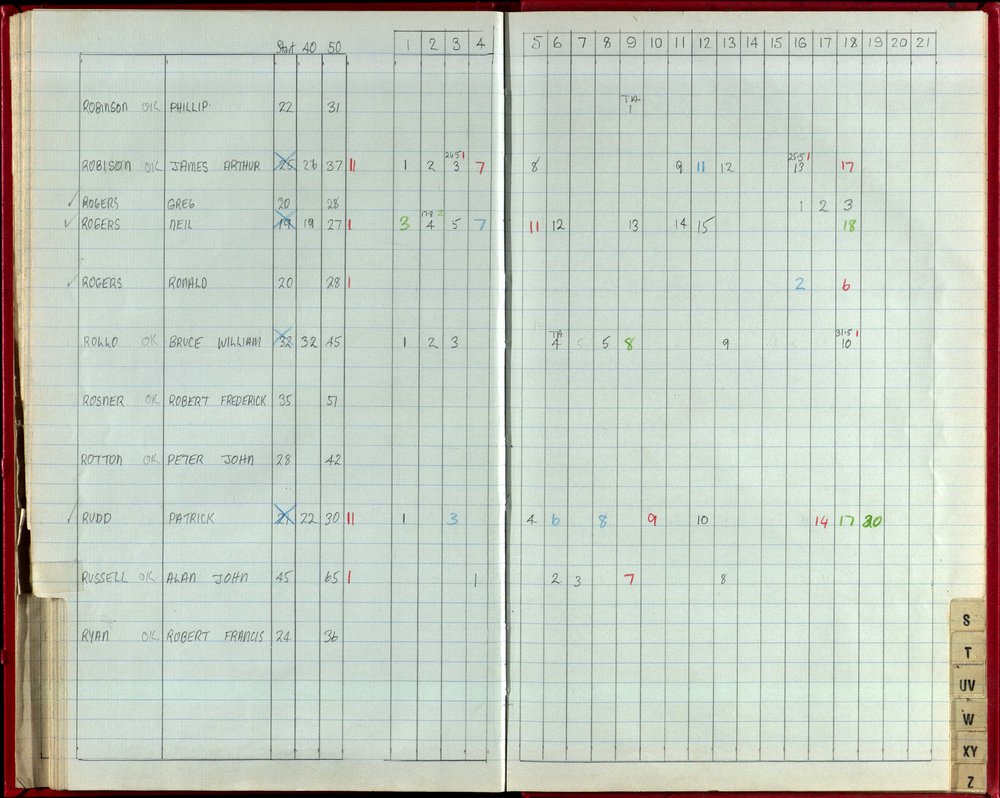 Start 40 50 1 2 3 4 5 6 7 8 9 10 11 12 13 14 15 16 17 18 19 20 21
TA
ROBINSON OK PHILLIP 22 31 1
26·5 1 25·5 1
ROBISON OK JAMES ARTHUR 25 26 37 11 1 2 3 7 8 9 11 12 13 17
✓ ROGERS GREG 20 28 1 2 3
✓ ROGERS NEIL 19 19 27 1 3 4 5 7 11 12 13 14 15 18
✓ ROGERS RONALD 20 28 1 2 6
TA 31·5 1
ROLLO OK BRUCE WILLIAM 32 32 45 1 2 3 4 5 8 9 10
ROSNER OK ROBERT FREDERICK 35 51
ROTTON OK PETER JOHN 28 42
✓ RUDD PATRICK 21 22 30 11 1 3 4 6 8 9 10 14 17 20
RUSSELL OK ALAN JOHN 45 65 1 1 2 3 7 8
RYAN OK ROBERT FRANCIS 24 36
S
T
UV
W
XY
Z